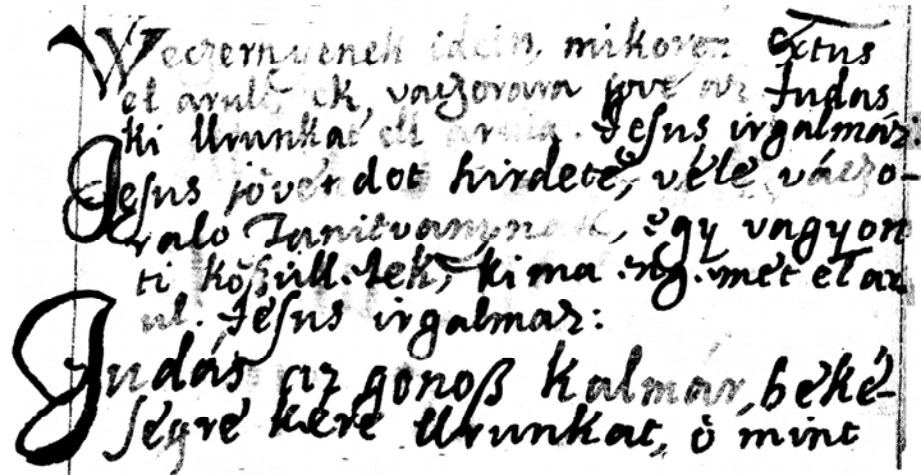 Weczernyenek idein, mikoron Extus
el arultaték, vaczorara jöve az Iudas
ki Urunkat ell arula. Iesus irgalmaz:
Iesus jövendot hirdete, véle váczo-
ralo Tanitvanynak, egy vagyon
ti közülletek, ki ma engemet el ar
ul. Iesus irgalmaz:
Iudás az gonoß kalmár, béké-
ségre kére Urunkat, ö mint